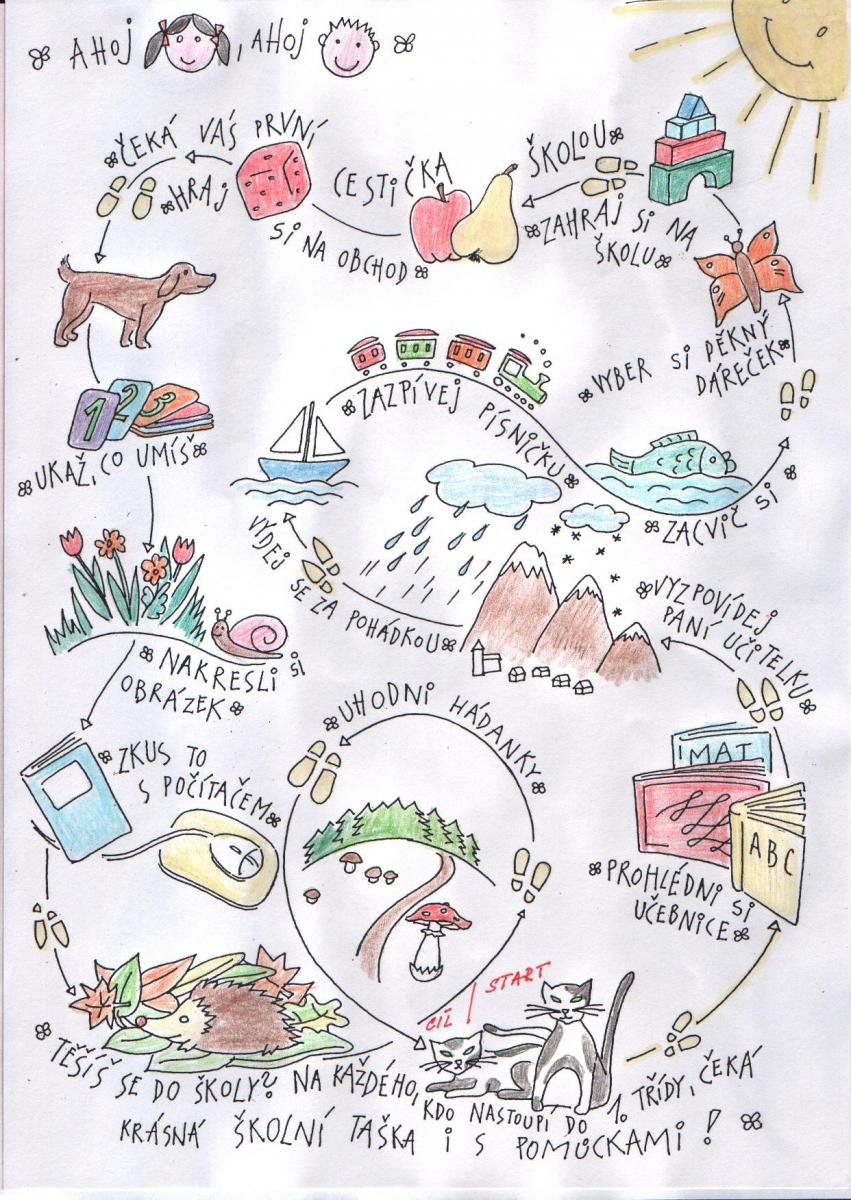 AHOJ , AHOJ
ČEKÁ VÁS PRVNÍ
CESTIČKA
ŠKOLOU
HRAJ
SI NA OBCHOD
ZAHRAJ SI NA
ŠKOLU
VYBER SI PĚKNÝ
DÁREČEK
ZAZPÍVEJ PÍSNIČKU
1 2 3
UKAŽ, CO UMÍŠ
ZACVIČ SI
VYDEJ SE ZA POHÁDKOU
VYZPOVÍDEJ
PANÍ UČITELKU
NAKRESLI SI
OBRÁZEK
UHODNI HÁDANKY
ZKUS TO
S POČÍTAČEM
MAT
ABC
PROHLÉDNI SI
UČEBNICE
CÍL
START
TĚŠÍŠ SE DO ŠKOLY? NA KAŽDÉHO, KDO NASTOUPÍ DO 1. TŘÍDY, ČEKÁ
KRÁSNÁ ŠKOLNÍ TAŠKA I S POMŮCKAMI!